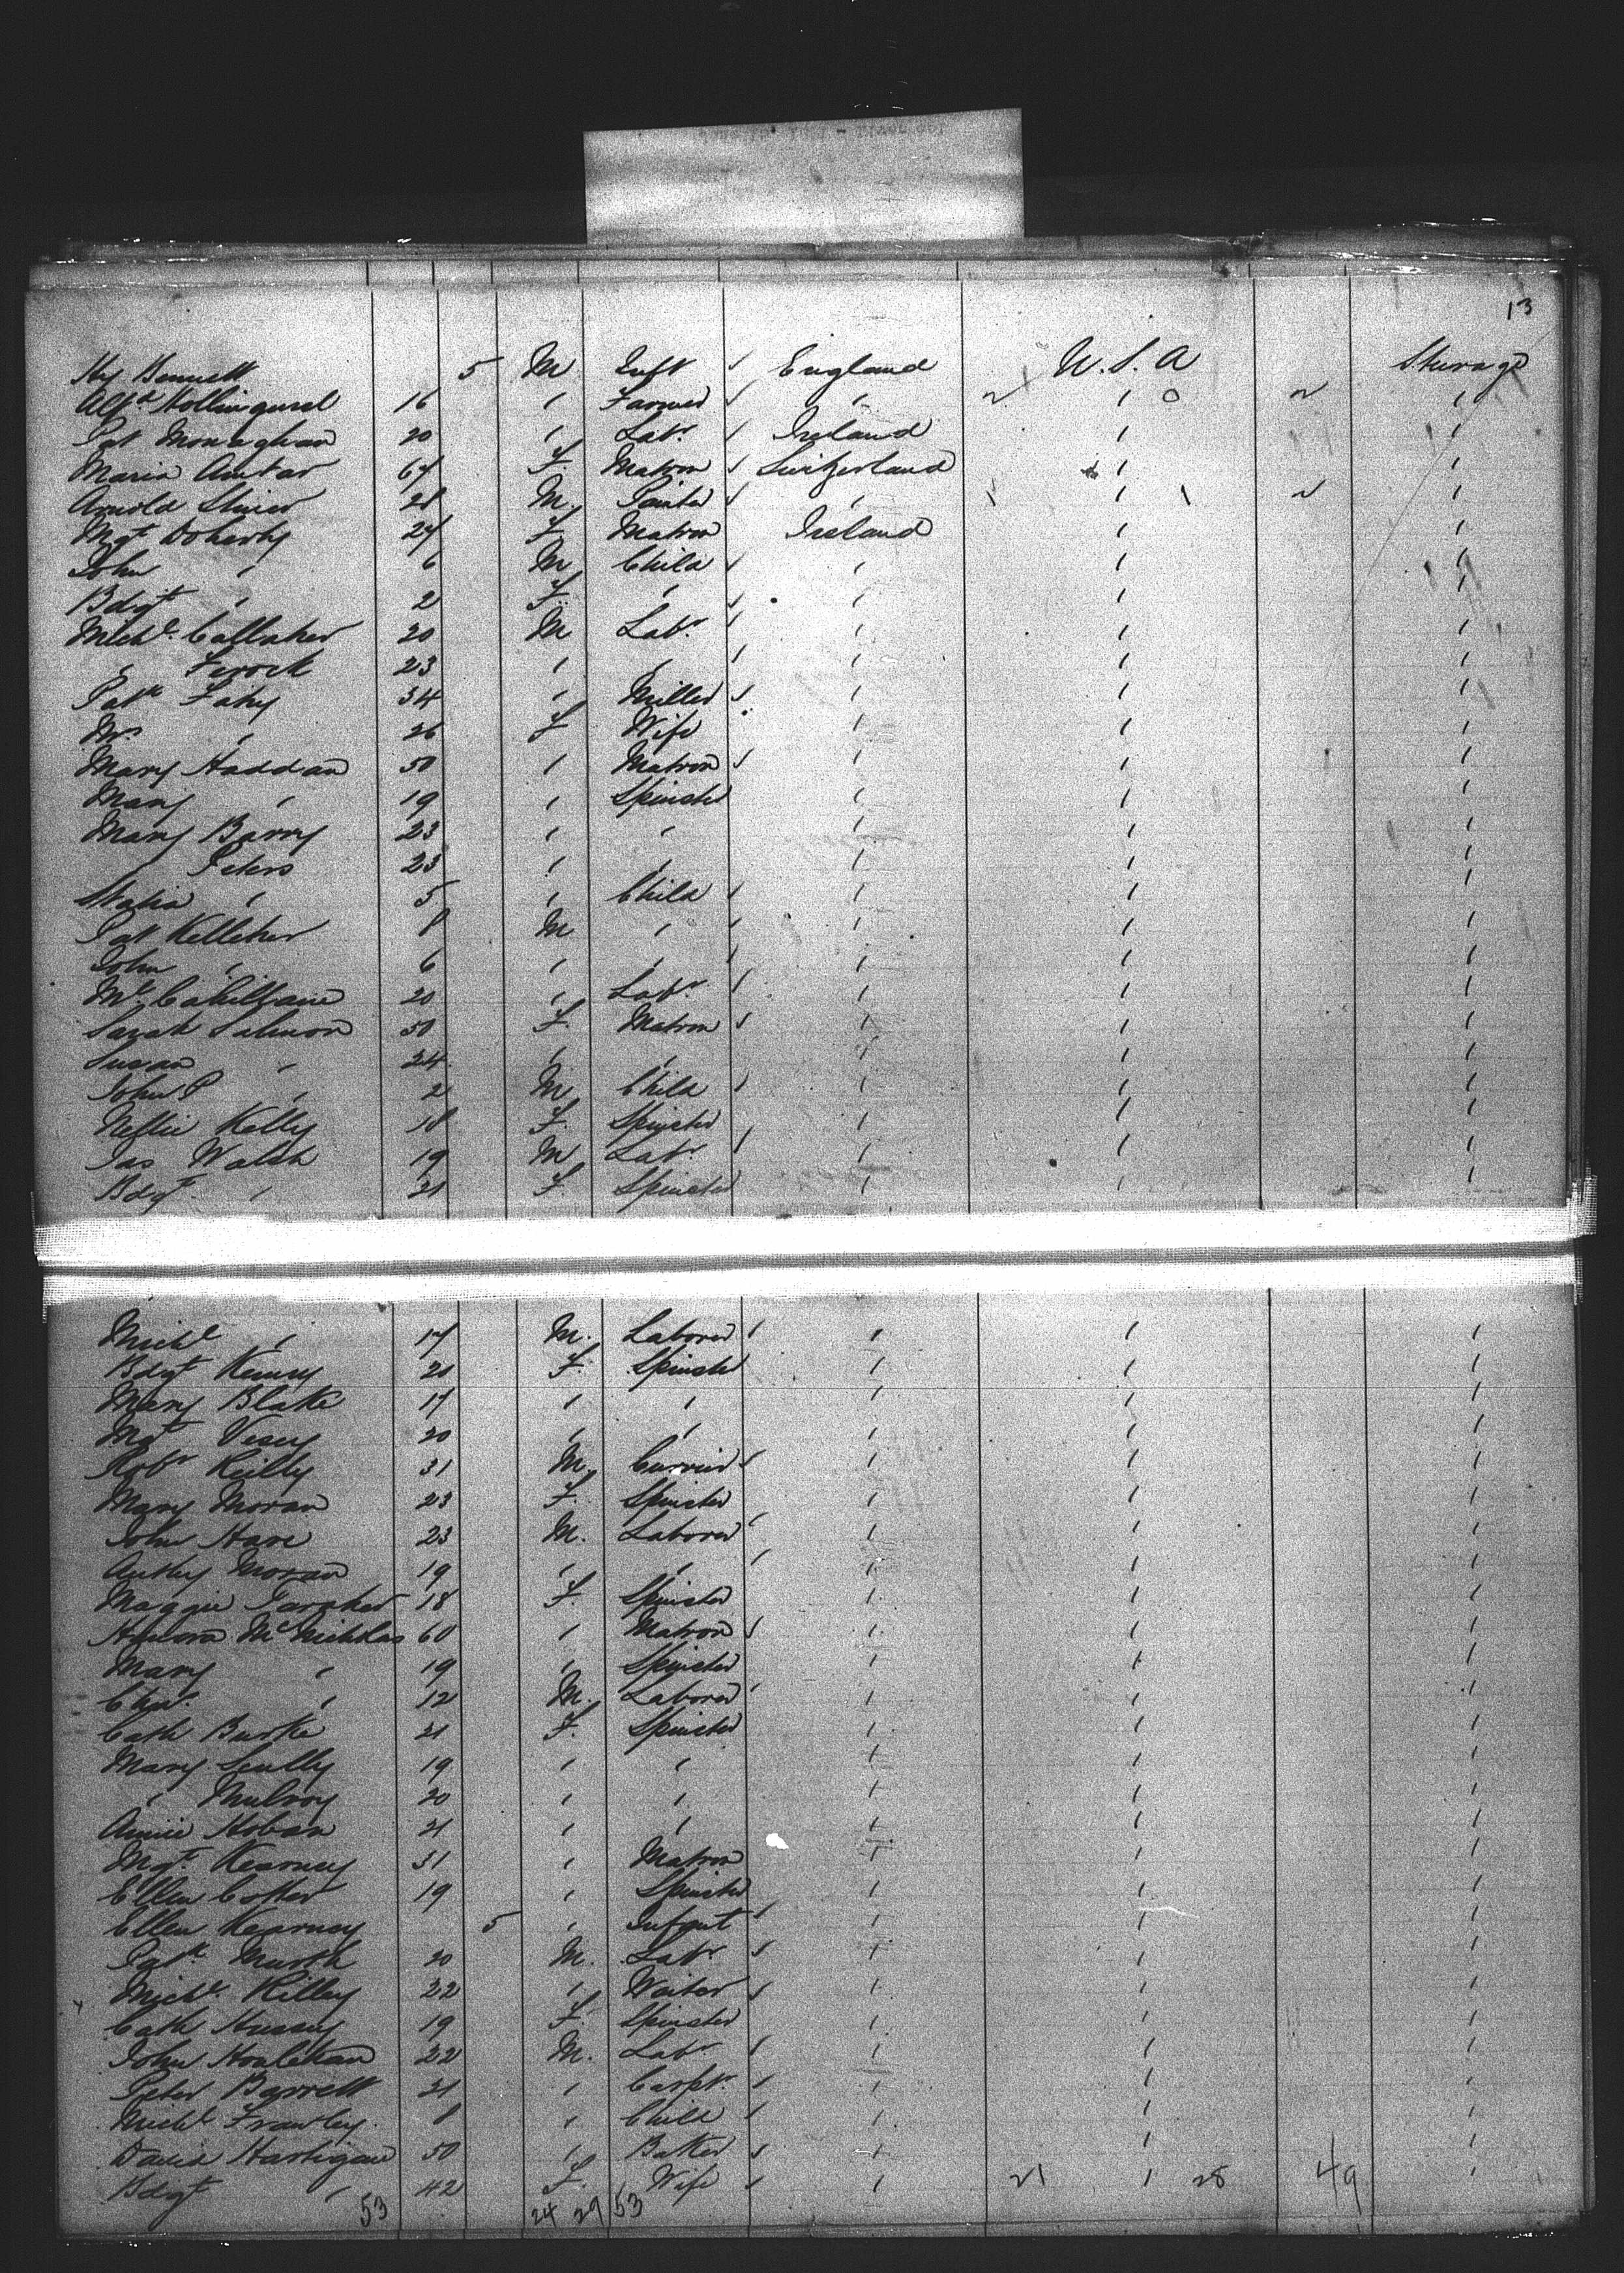 13
Hy Bennett 5 M Inft England U.S.A Steerage
Alfd Hollingurst 16 " Farmer " " O "
Pat Monaghan 20 " Labr Ireland " "
Maria 64 F. Matron Switzerland " "
Arnold 28 M. " " "
Mgt Doherty 24 F Matron Ireland " "
John " 6 M Child " " "
Bdgt " 2 F. " " " "
Michl Callaher 20 M Labr " " "
" 23 " " " " "
Patk Fahy 34 " Miller " " "
Mrs " 26 F Wife " " "
Mary Haddan 50 " Matron " " "
Mary " 19 " Spinster " " "
Mary Barry 23 " " " " "
" Peters 23 " " " " "
Statia " 5 " Child " " "
Pat Kelleher 8 M " " " "
John " 6 " " " " "
20 " Labr " " "
Sarah Salmon 50 F. Matron " " "
Susan " 24 " " " " "
John P " 2 M Child " " "
Nellie Kelly 18 F. Spinster " " "
Jas Walsh 19 M Labr " " "
Bdgt " 21 F. Spinster " " "
Michl " 17 M. Laborer " " "
Bdgt Kenny 20 F. Spinster " " "
Mary Blake 17 " " " " "
Mgt Vesey 20 " " " " "
Robt Reilly 31 M. Currier " " "
Mary Moran 23 F. Spinster " " "
John Hare 23 M. Laborer " " "
Anthy Moran 19 " " " " "
Maggie 18 F. Spinster " " "
Honora McNicholas 60 " Matron " " "
Mary " 19 " Spinster " " "
" 12 M. Laborer " " "
Cath Burke 21 F. Spinster " " "
Mary Scully 19 " " " " "
" Mulroy 20 " " " " "
Annie Hoban 21 " " " " "
Mgt Kearney 31 " Matron " " "
Ellen Cotter 19 " Spinster " " "
Ellen Kearney 5 " Infant " " "
Patk 20 M. Labr " " "
Michl Killey 22 " Waiter " " "
Cath Hussey 19 F. Spinster " " "
John Houlehan 22 M. Labr " " "
Peter Barrett 21 " Carptr " " "
Michl Frawley 8 " Child " " "
David Hartigan 50 " Baker " " "
Bdgt " 42 F. Wife " 21 " 28 49 "
53 24 29 53